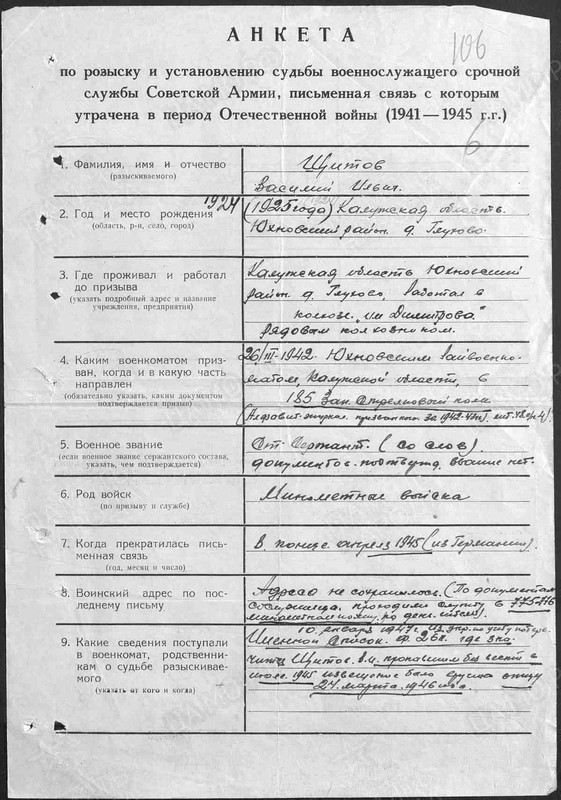 АНКЕТА
106
по розыску и установлению судьбы военнослужащего срочной
службы Советской Армии, письменная связь с которым
утрачена в период Отечественной войны (1941—1945 г.г.)
6
1. Фамилия, имя и отчество
(разыскиваемого)
Щитов
Василий Ильич.
2. Год и место рождения
(область, р-н, село, город)
1924
(1925 года) Калужская область.
Юхновский район д. Глухово.
3. Где проживал и работал
до призыва
(указать подробный адрес и название
учреждения, предприятия)
Калужская область Юхновский
район д. Глухово, работал в
колхозе „им Димитрова"
рядовым колхозником.
4. Каким военкоматом приз-
ван, когда и в какую часть
направлен
(обязательно указать, каким документом
подтверждается призыв)
26/III-1942. Юхновским Райвоенко-
матом, Калужской области, в
185 Зап. Стрелковый полк
(Алфавит. журнал призванных за 1942-43
5. Военное звание
(если военное звание сержантского состава,
указать, чем подтверждается)
Ст. Сержант. (со слов).
документов подтвержд. звание нет.
6. Род войск
(по призыву и службе)
Минометные войска
7. Когда прекратилась пись-
менная связь
(год, месяц и число)
В конце апреля 1945 (из Германии).
8. Воинский адрес по по-
следнему письму
Адреса не сохранилось. (По документам
сослуживца, проходил службу в 775
минометном полку, по день
9. Какие сведения поступали
в военкомат, родственни-
кам о судьбе разыскивае-
мого
(указать от кого и когда)
10 января 1947 г. из Упр. по учету потерь.
Именной Список. ф. 2бс. где зна-
чится Щитов. В.И. пропавшим без вести в
июле 1945 извещение было вручено отцу
24. марта. 1946 года.